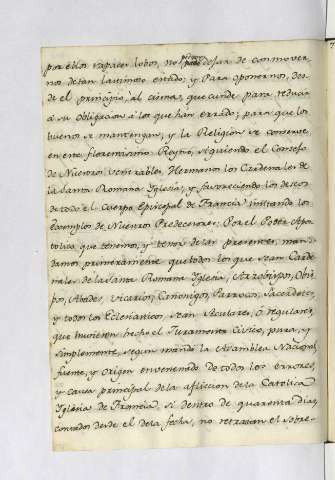 por ellos rapaces lobos, no pudimos dejar de conmover-
nos de tan lastimoso estado; y Para oponernos, des-
de el principio, al cisma, que cunde para reducir
a su obligacion a los que han errado; para que los
buenos se mantengan, y la Religion se conserve
en ese florentisimo Reyno, siguiendo el Consejo
de Nuestros venerables Hermanos los Cardenales de
la Santa Romana Yglesia, y favoreciendo los deseos
de todo el Cuerpo Episcopal de Francia imitando los
Exemplos de Nuestros Predecesores: Por el Poder Apos-
tolico que tenemos, y tenor de las presentes, man-
damos primeramente que todos los que sean Carde-
nales de la Santa Romana Yglesia, Arzobispos, Obis-
pos, Abades, Vicarios, Canonigos, Parrocos, Sacerdotes,
y todos los Eclesiasticos sean Seculares, ó regulares,
que huviesen hecho el Juramento Civico, pura, y
simplemente, segun mandó la Asamblea Nacional,
fuente, y origen envenenado de todos los errores,
y causa principal de la afliccion de la Catolica
Yglesia de Francia, si dentro de quarenta dias,
contados desde el de la fecha, no retractan el sobre-